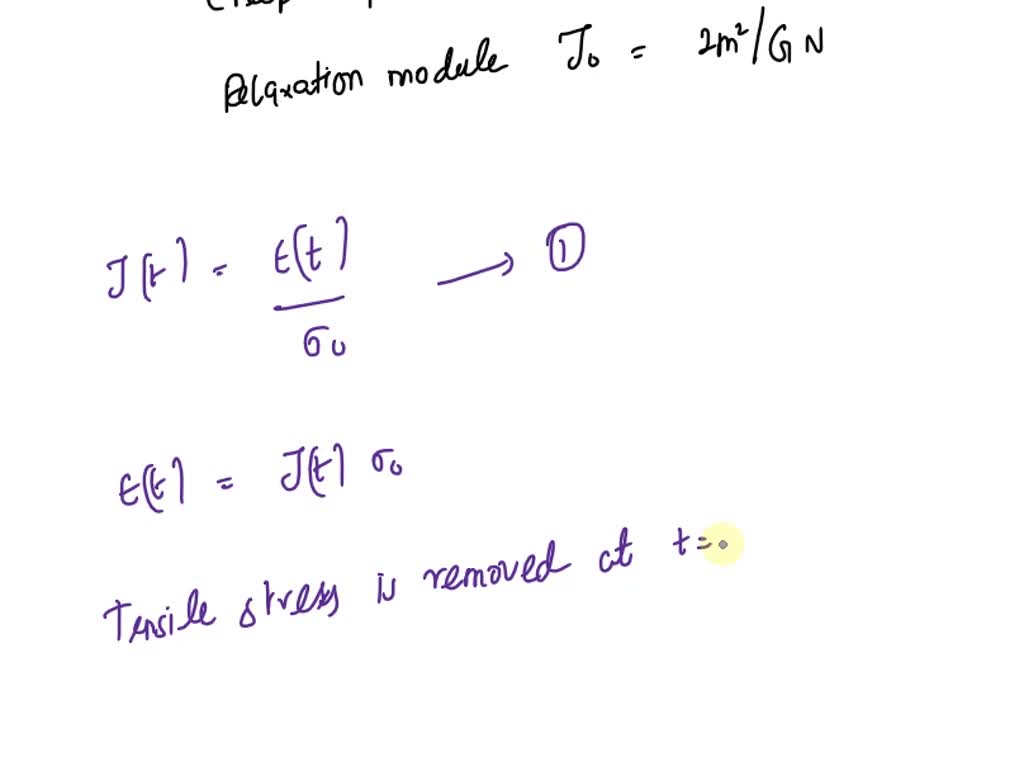 Relaxation module J₀ = 2m²/GN
J(t) = ε(t)/σ₀ → ①
ε(t) = J(t) σ₀
Tensile stress is removed at t=